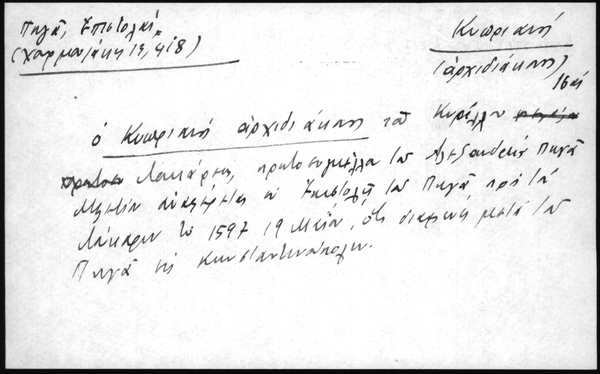 Πηγᾶ, Ἐπιστολαί,
(Χαρμαντάκη 19, 418)
Κυπριανὸς
(ἀρχιδιάκονος)
16 αἰ
ὁ Κυπριανὸς ἀρχιδιάκονος τοῦ Κυρίλλου
Λουκάρεως, πρωτοσυγκέλλου τοῦ Ἀλεξανδρείας Πηγᾶ
Μελετίου ἀναφέρεται εἰς Ἐπιστολὴν τοῦ Πηγᾶ πρὸς τὸν
Λούκαριν τὸ 1597 19 Μαΐου, ὅτι διαμένει μετὰ τοῦ
Πηγᾶ εἰς Κωνσταντινούπολιν.